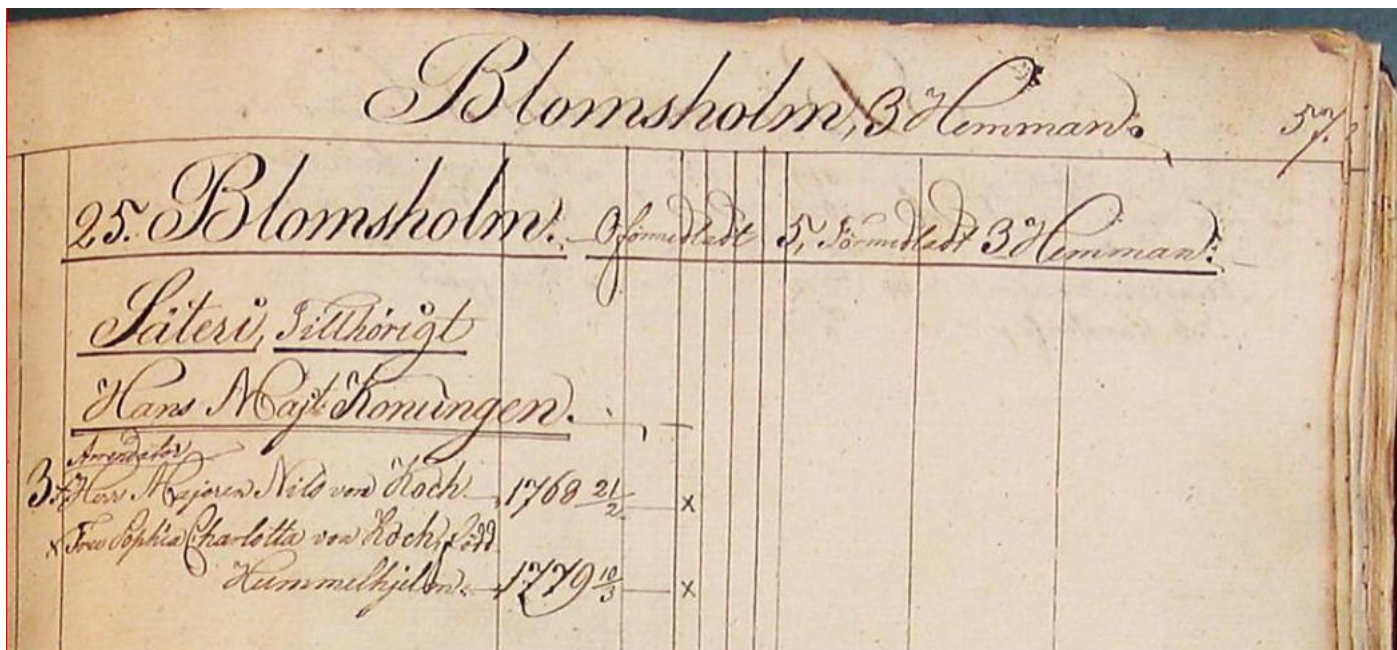 Blomsholm, 3 Hemman. 57.
25. Blomsholm. Oförmedladt 5, Förmedladt 3 Hemman.
Säteri, Tillhörigt
Hans Majt: Konungen.
Arrendator
3. Herr Majoren Nils von Koch 1768 21/2 x
x Fru Sophia Charlotta von Koch, född
Hummelhjelm 1779 10/3 x